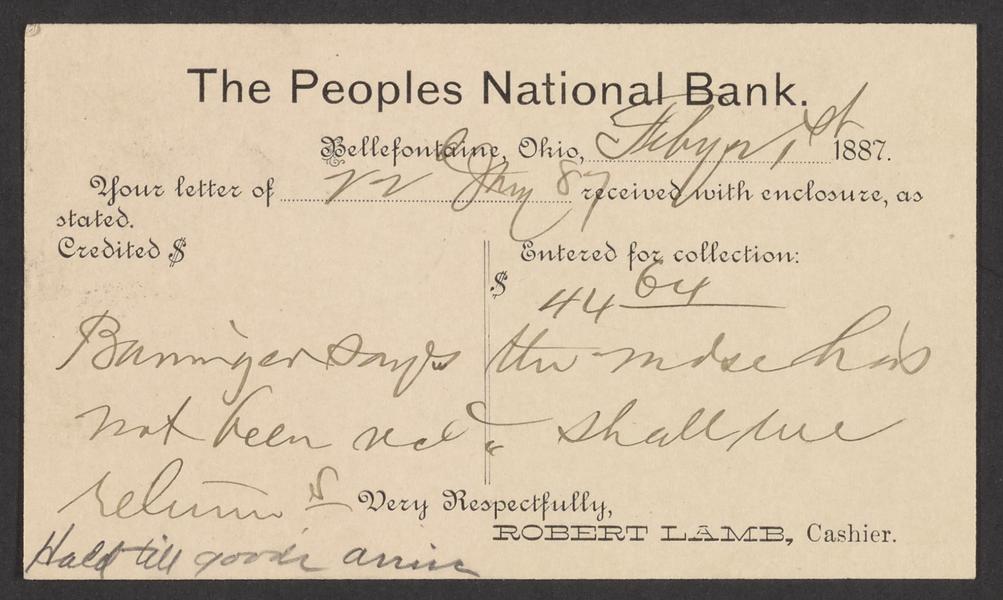 The Peoples National Bank.
Bellefontaine, Ohio, Feby 1st 1887.
Your letter of 22 Jany 87 received with enclosure, as
stated.
Credited $
Entered for collection:
$ 44 64
says the mdse has
not been recd shall we
return
Very Respectfully,
ROBERT LAMB, Cashier.
Hold till goods arrive